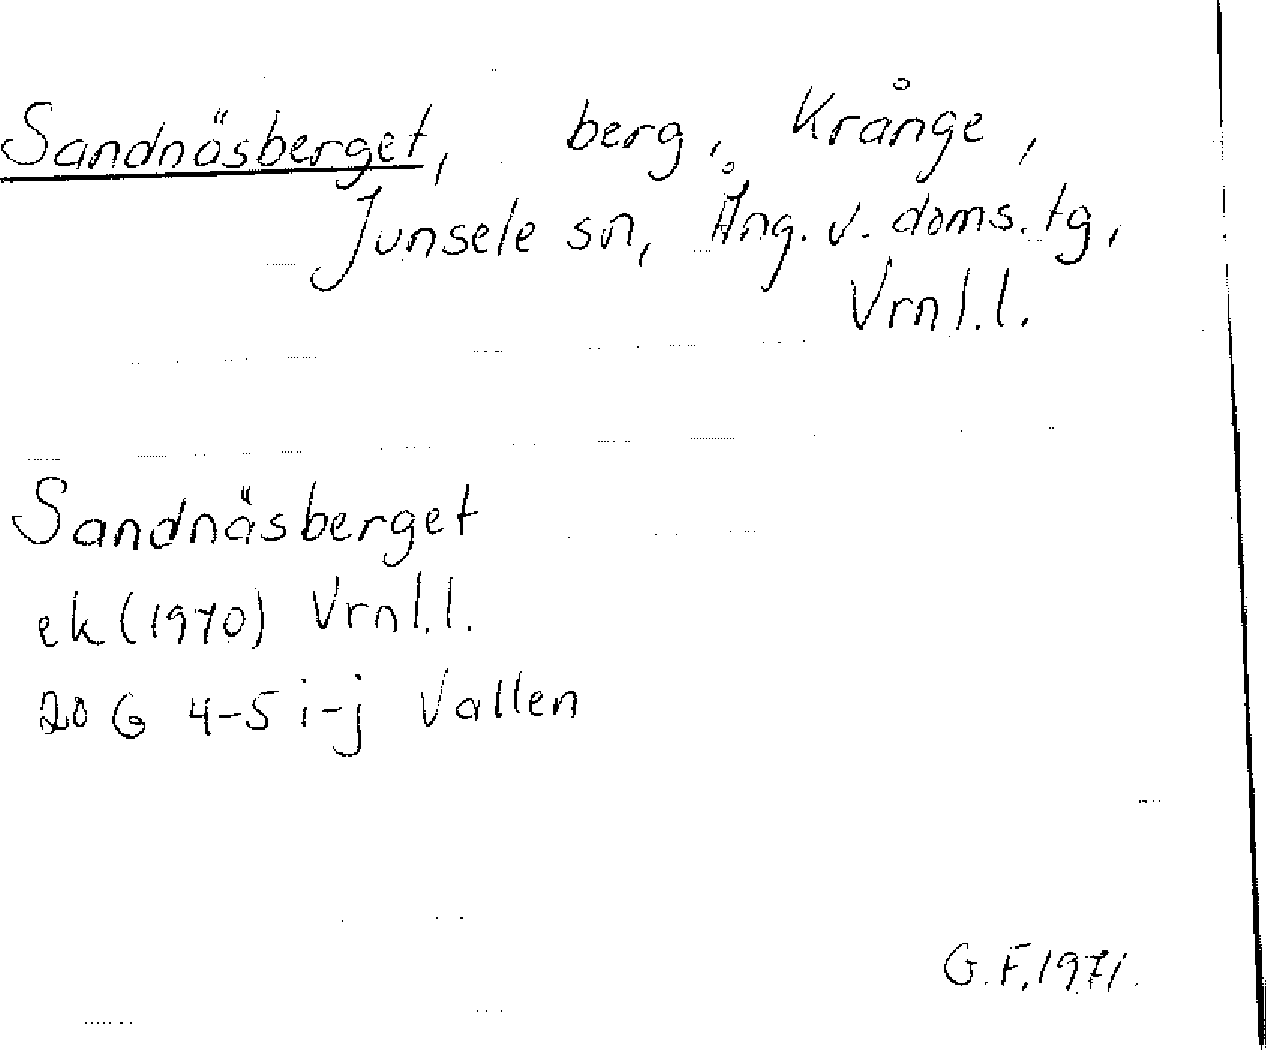 Sandnäsberget, berg, Krånge,
Junsele sn, Ång. v. doms. tg,
Vrnl.l.
Sandnäsberget
ek (1970) Vrnl.l.
20 G 4-5 i-j Vallen
G.F. 1971.